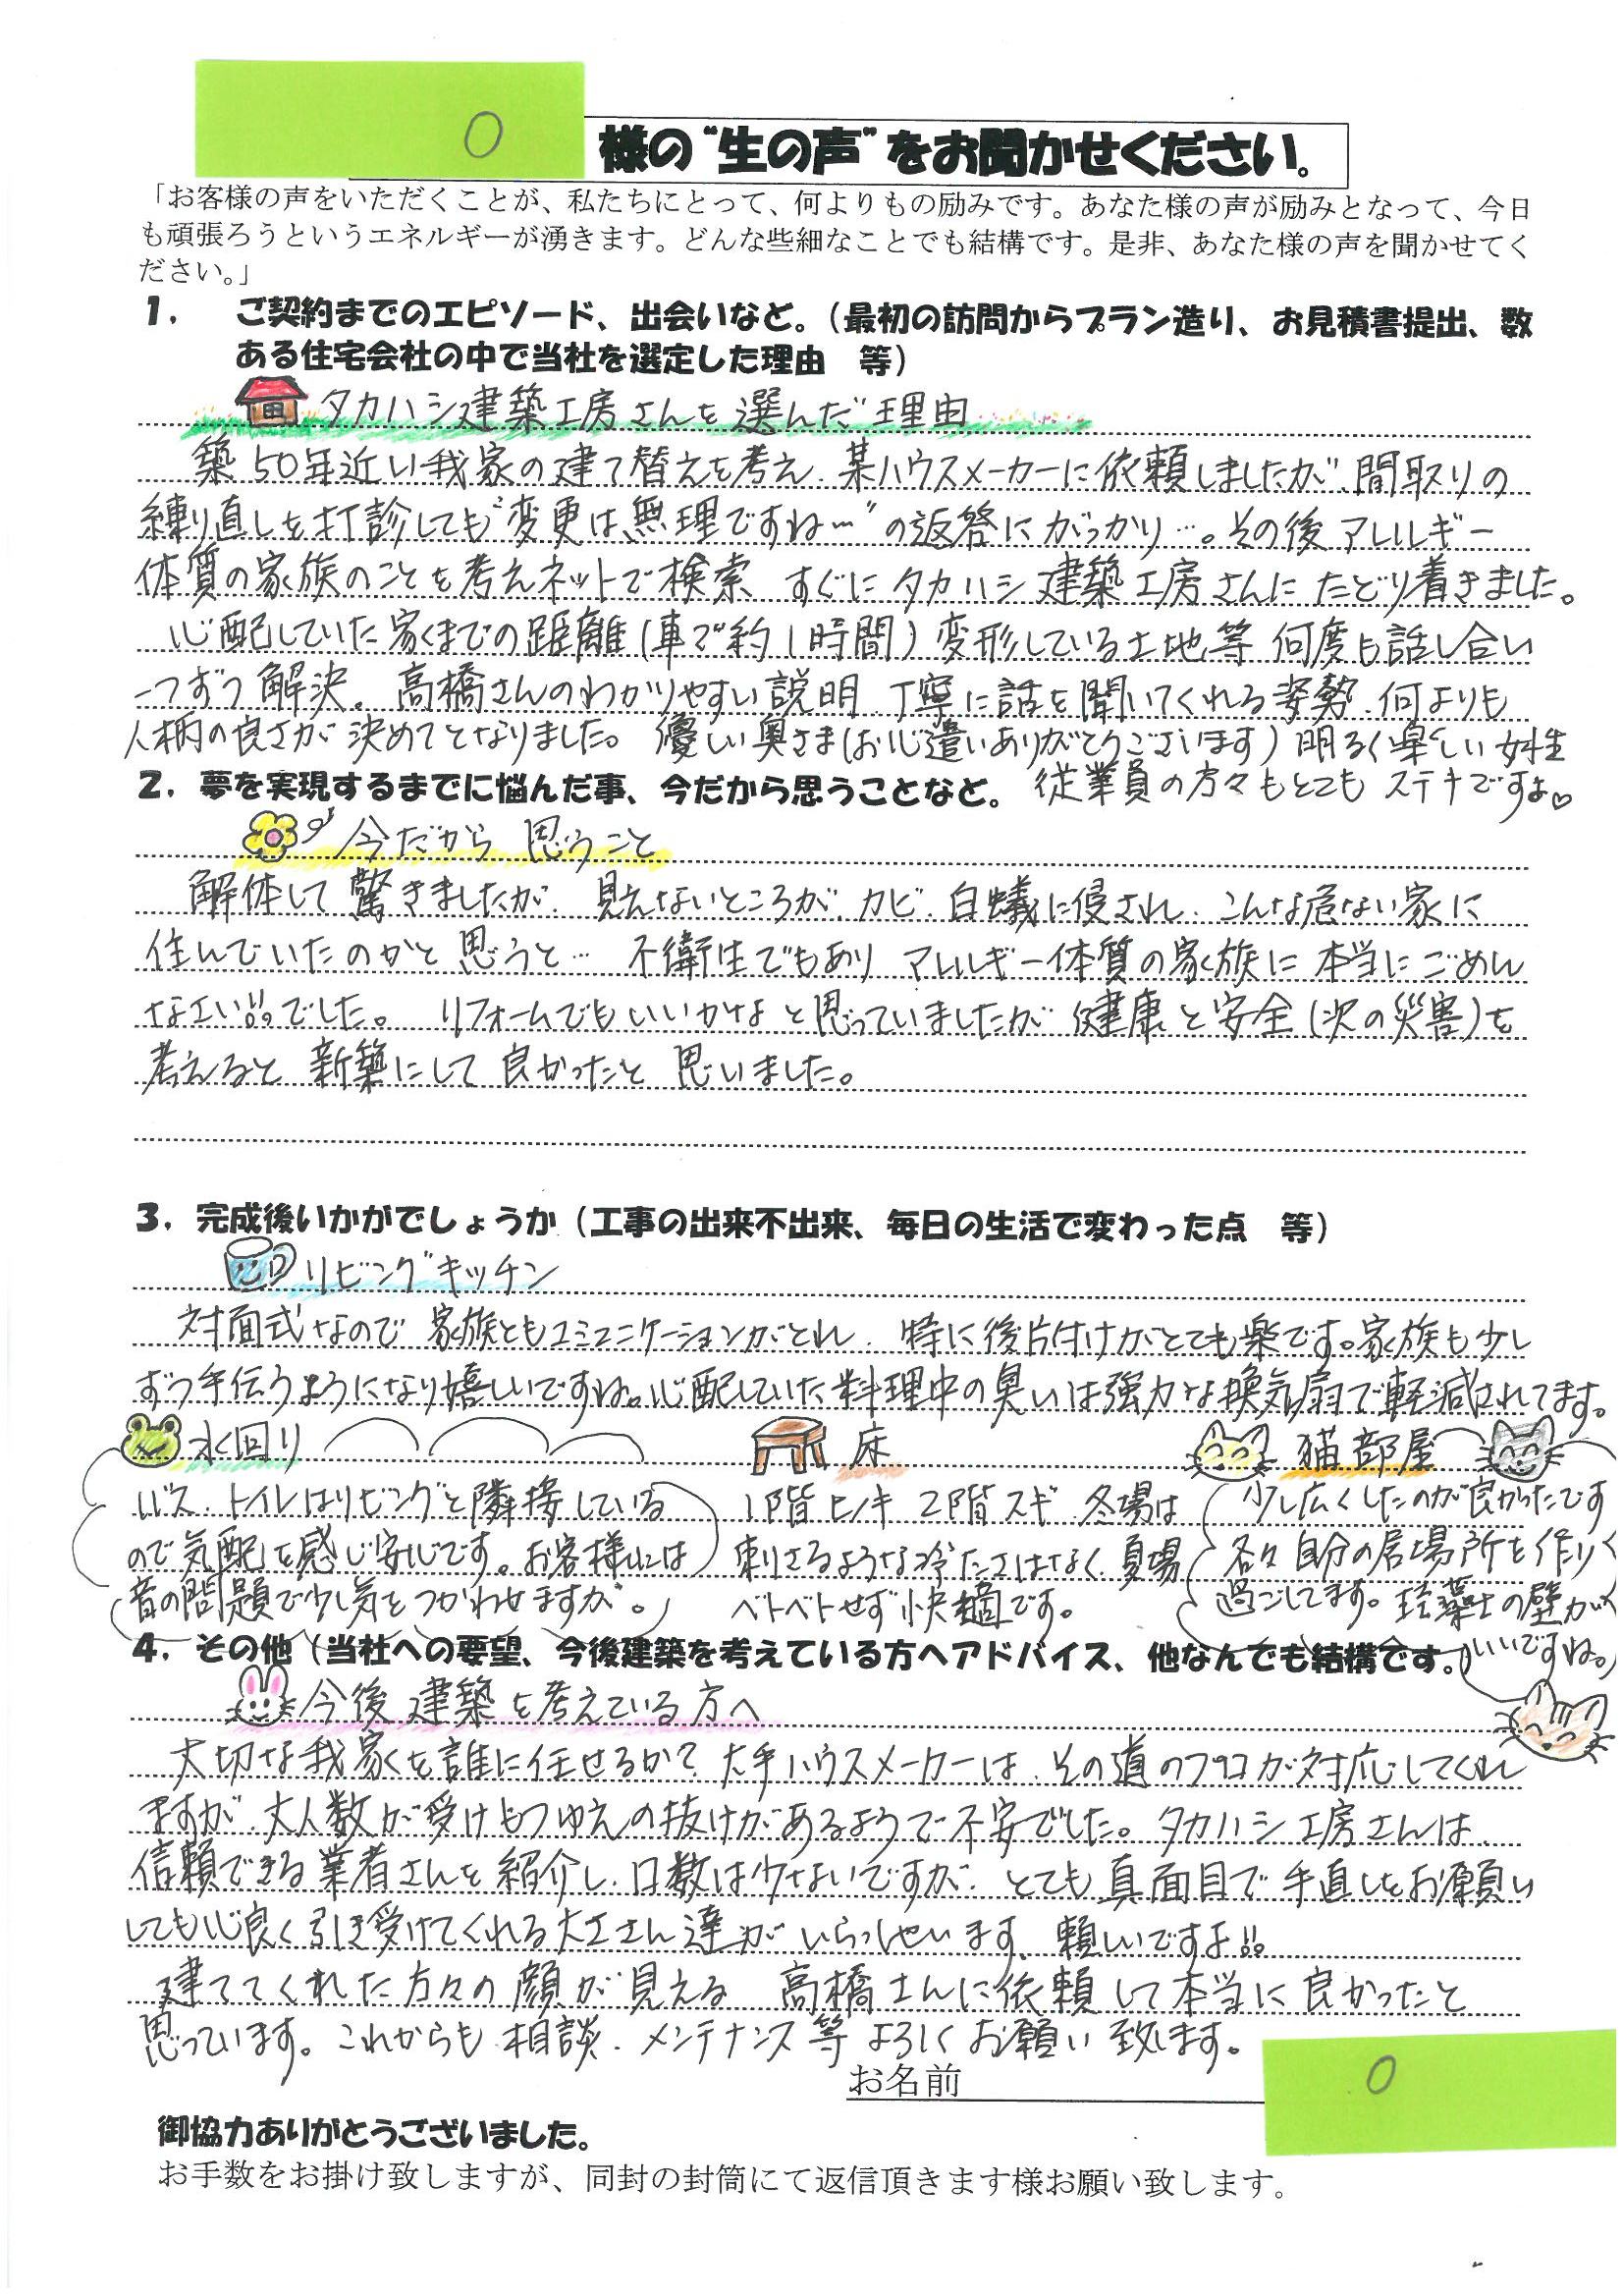 O 様の"生の声"をお聞かせください。
「お客様の声をいただくことが、私たちにとって、何よりもの励みです。あなた様の声が励みとなって、今日
も頑張ろうというエネルギーが湧きます。どんな些細なことでも結構です。是非、あなた様の声を聞かせてく
ださい。」
1. ご契約までのエピソード、出会いなど。(最初の訪問からプラン造り、お見積書提出、数
ある住宅会社の中で当社を選定した理由 等)
タカハシ建築工房さんを選んだ理由
築50年近い我家の建て替えを考え、某ハウスメーカーに依頼しましたが、間取りの
練り直しを打診しても"変更は無理ですね…"の返答にがっかり…。その後アレルギー
体質の家族のことを考えネットで検索 すぐにタカハシ建築工房さんにたどり着きました。
心配していた家までの距離(車で約1時間)変形している土地等 何度も話し合い
一つずつ解決。高橋さんのわかりやすい説明、丁寧に話を聞いてくれる姿勢、何よりも
人柄の良さが決めてとなりました。優しい奥さま(お心遣いありがとうございます)明るく楽しい女性
従業員の方々もとてもステキですよ♡
2. 夢を実現するまでに悩んだ事、今だから思うことなど。
今だから思うこと
解体して驚きましたが、見えないところが、カビ、白蟻に侵され、こんな危ない家に
住んでいたのかと思うと… 不衛生でもあり アレルギー体質の家族に本当にごめん
なさい!!でした。 リフォームでもいいかなと思っていましたが 健康と安全(次の災害)を
考えると新築にして良かったと思いました。
3. 完成後いかがでしょうか(工事の出来不出来、毎日の生活で変わった点 等)
リビングキッチン
対面式なので家族ともコミュニケーションがとれ、特に後片付けがとても楽です。家族も少し
ずつ手伝うようになり嬉しいですね。心配していた料理中の臭いは強力な換気扇で軽減されてます。
水回り
バス、トイレはリビングと隣接している
ので気配を感じ安心です。お客様には
音の問題で少し気をつかわせますが。
床
1階ヒノキ 2階スギ 冬場は
刺さるような冷たさはなく、夏場
ベトベトせず快適です。
猫部屋
少し広くしたのが良かったです
各々自分の居場所を作り
過ごしてます。珪藻土の壁が
いいですね。
4. その他(当社への要望、今後建築を考えている方へアドバイス、他なんでも結構です。)
今後建築を考えている方へ
大切な我家を誰に任せるか?大手ハウスメーカーは、その道のプロが対応してくれ
ますが、大人数が受けもつゆえの抜けがあるようで不安でした。タカハシ工房さんは、
信頼できる業者さんを紹介し、口数は少ないですが、とても真面目で手直しをお願い
しても心良く引き受けてくれる大工さん達がいらっしゃいます、頼しいですよ!!
建ててくれた方々の顔が見える 高橋さんに依頼して本当に良かったと
思っています。これからも相談、メンテナンス等よろしくお願い致します。
お名前 O
御協力ありがとうございました。
お手数をお掛け致しますが、同封の封筒にて返信頂きます様お願い致します。